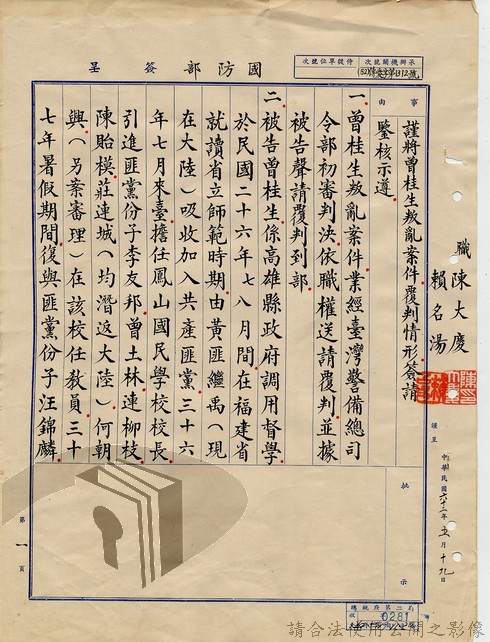 國防部簽呈
承辦機關號次
侍從單位號次
事由
謹將曾桂生叛亂案件覆判情形簽請
鑒核示遵。
職 陳大慶
賴名湯
謹呈 中華民國六十二年五月十九日
一、曾桂生叛亂案件業經臺灣警備總司
令部初審判決依職權送請覆判並據
被告聲請覆判到部
二、被告曾桂生係高雄縣政府調用督學
於民國二十六年七八月間在福建省
就讀省立師範時期由黃匪繼禹(現
在大陸)吸收加入共產匪黨三十六
年七月來臺擔任鳳山國民學校校長
引進匪黨份子李友邦曾土林連柳枝
陳貽模莊連城(均潛返大陸)何朝
興(另案審理)在該校任教員三十
七年暑假期間復與匪黨份子汪錦麟
批示
第一頁
總統府第二局
0281
請合法使用公開之影像